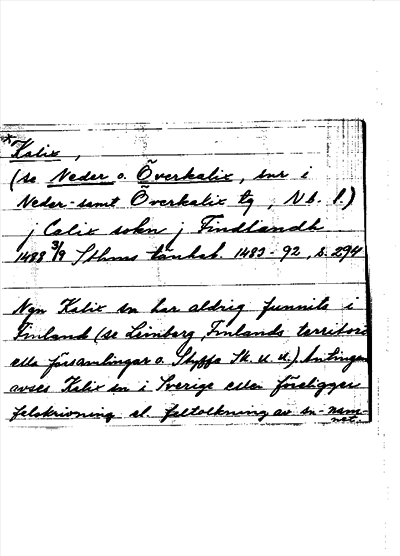 Kalix,
(se Neder o. Överkalix, snr i
Neder- samt Överkalix tg, Nb. l.)
j Calix sokn j Findlandh
1488 3/9 Sthms tänkeb. 1483-92, s. 294
Ngn Kalix sn har aldrig funnits i
Finland (se Leinberg, Finlands territori
ella församlingar o. Styffe Sk. u. u.). Antingen
avses Kalix sn i Sverige eller föreligger
felskrivning el. feltolkning av sn-nam-
net.